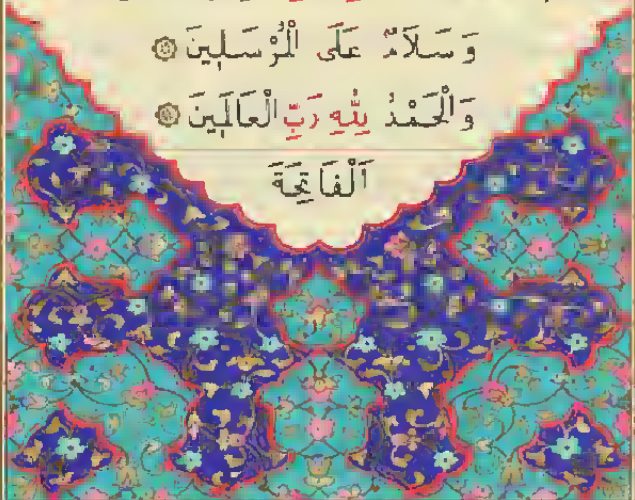 وَسَلَامٌ عَلَى الْمُرْسَلِينَ
وَالْحَمْدُ لِلّٰهِ رَبِّ الْعَالَمِينَ
اَلْفَاتِحَةَ